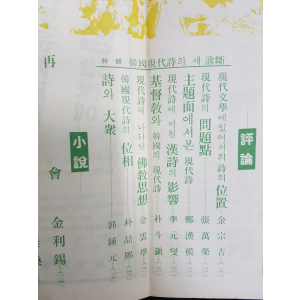 特輯 韓國現代詩의 새 診斷
評論
現代文學에있어서의 詩의 位置 金宗吉
現代詩의 問題點 張萬榮
主題面에서본 現代詩 鄭漢模
現代詩에 미친 漢詩의 影響 李元燮
基督敎와 韓國의 現代詩 朴斗鎭
現代詩에 나타난 佛敎思想 金雲學
韓國現代詩의 位相 朴喆熙
詩와 大衆 郭鍾元
小說
再會 金利錫